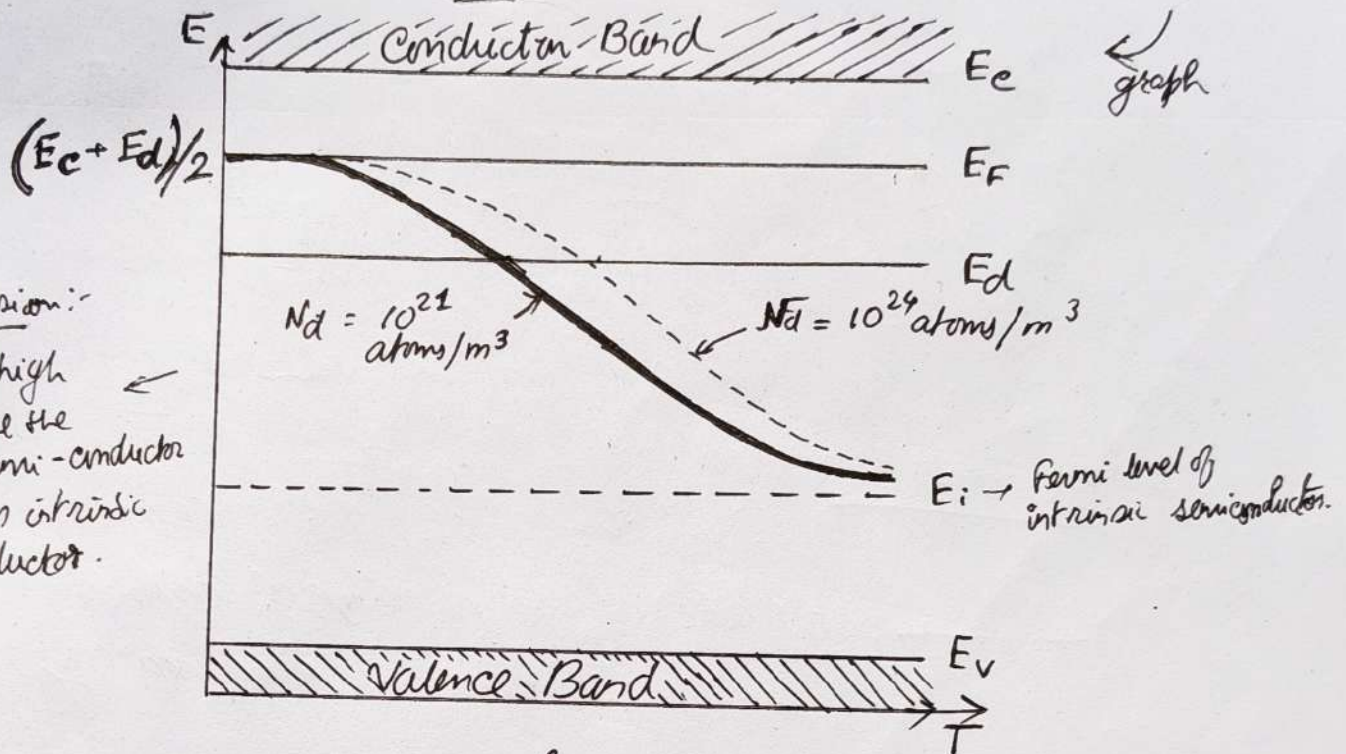 E
Conduction Band
Ec
graph
(Ec + Ed)/2
EF
Ed
Nd = 10²¹
atoms/m³
Nd = 10²⁴ atoms/m³
high
the
semi-conductor
intrinsic
Ei → Fermi level of
intrinsic semiconductor.
Ev
Valence Band
T